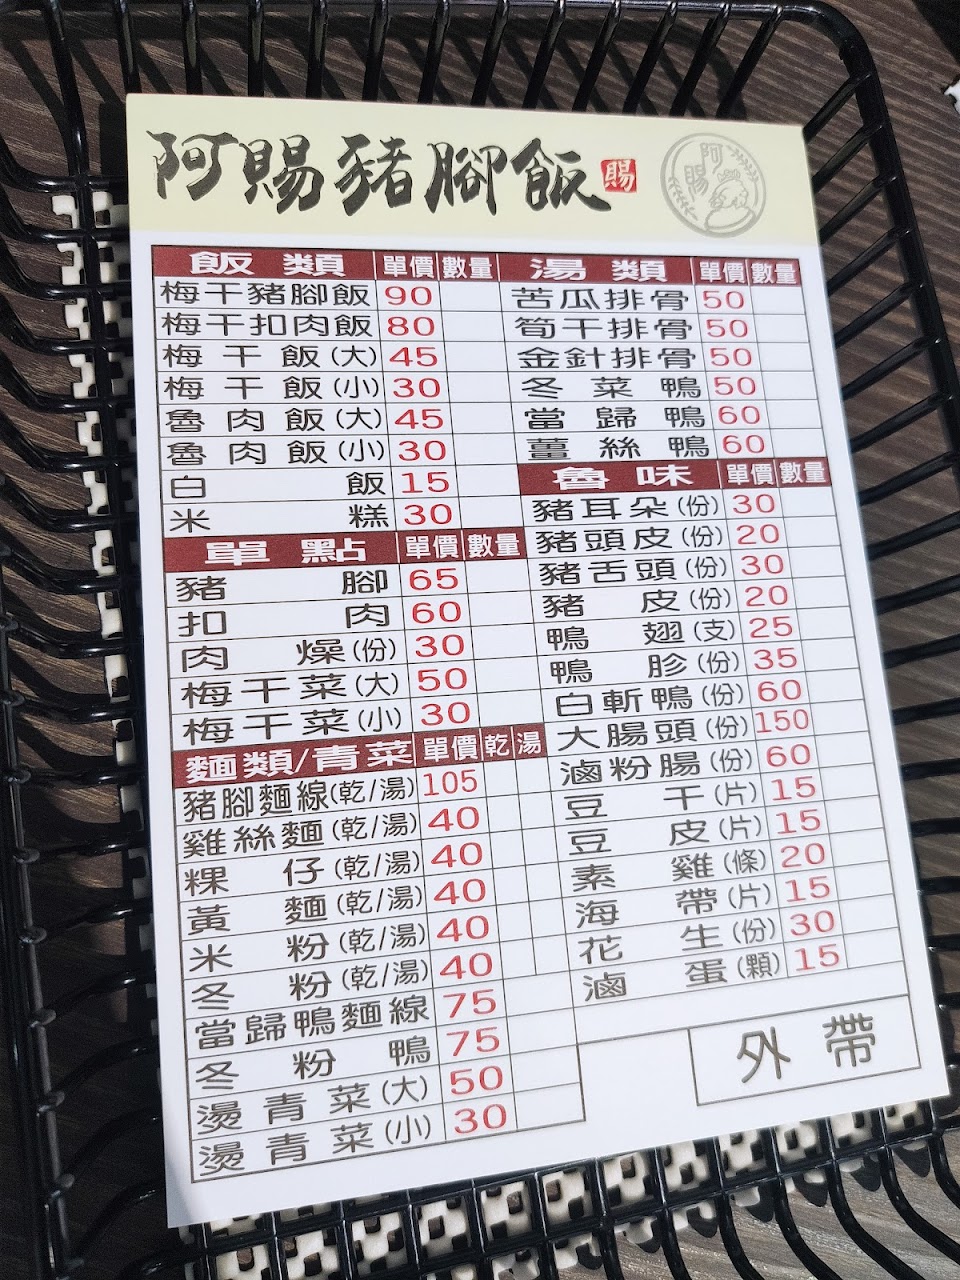 阿賜豬腳飯 賜
阿賜
飯類 單價 數量
梅干豬腳飯 90
梅干扣肉飯 80
梅干飯(大) 45
梅干飯(小) 30
魯肉飯(大) 45
魯肉飯(小) 30
白飯 15
米糕 30
單點 單價 數量
豬腳 65
扣肉 60
肉燥(份) 30
梅干菜(大) 50
梅干菜(小) 30
麵類/青菜 單價 乾 湯
豬腳麵線(乾/湯) 105
雞絲麵(乾/湯) 40
粿仔(乾/湯) 40
黃麵(乾/湯) 40
米粉(乾/湯) 40
冬粉(乾/湯) 40
當歸鴨麵線 75
冬粉鴨 75
燙青菜(大) 50
燙青菜(小) 30
湯類 單價 數量
苦瓜排骨 50
筍干排骨 50
金針排骨 50
冬菜鴨 50
當歸鴨 60
薑絲鴨 60
魯味 單價 數量
豬耳朵(份) 30
豬頭皮(份) 20
豬舌頭(份) 30
豬皮(份) 20
鴨翅(支) 25
鴨胗(份) 35
白斬鴨(份) 60
大腸頭(份) 150
滷粉腸(份) 60
豆干(片) 15
豆皮(片) 15
素雞(條) 20
海帶(片) 15
花生(份) 30
滷蛋(顆) 15
外帶